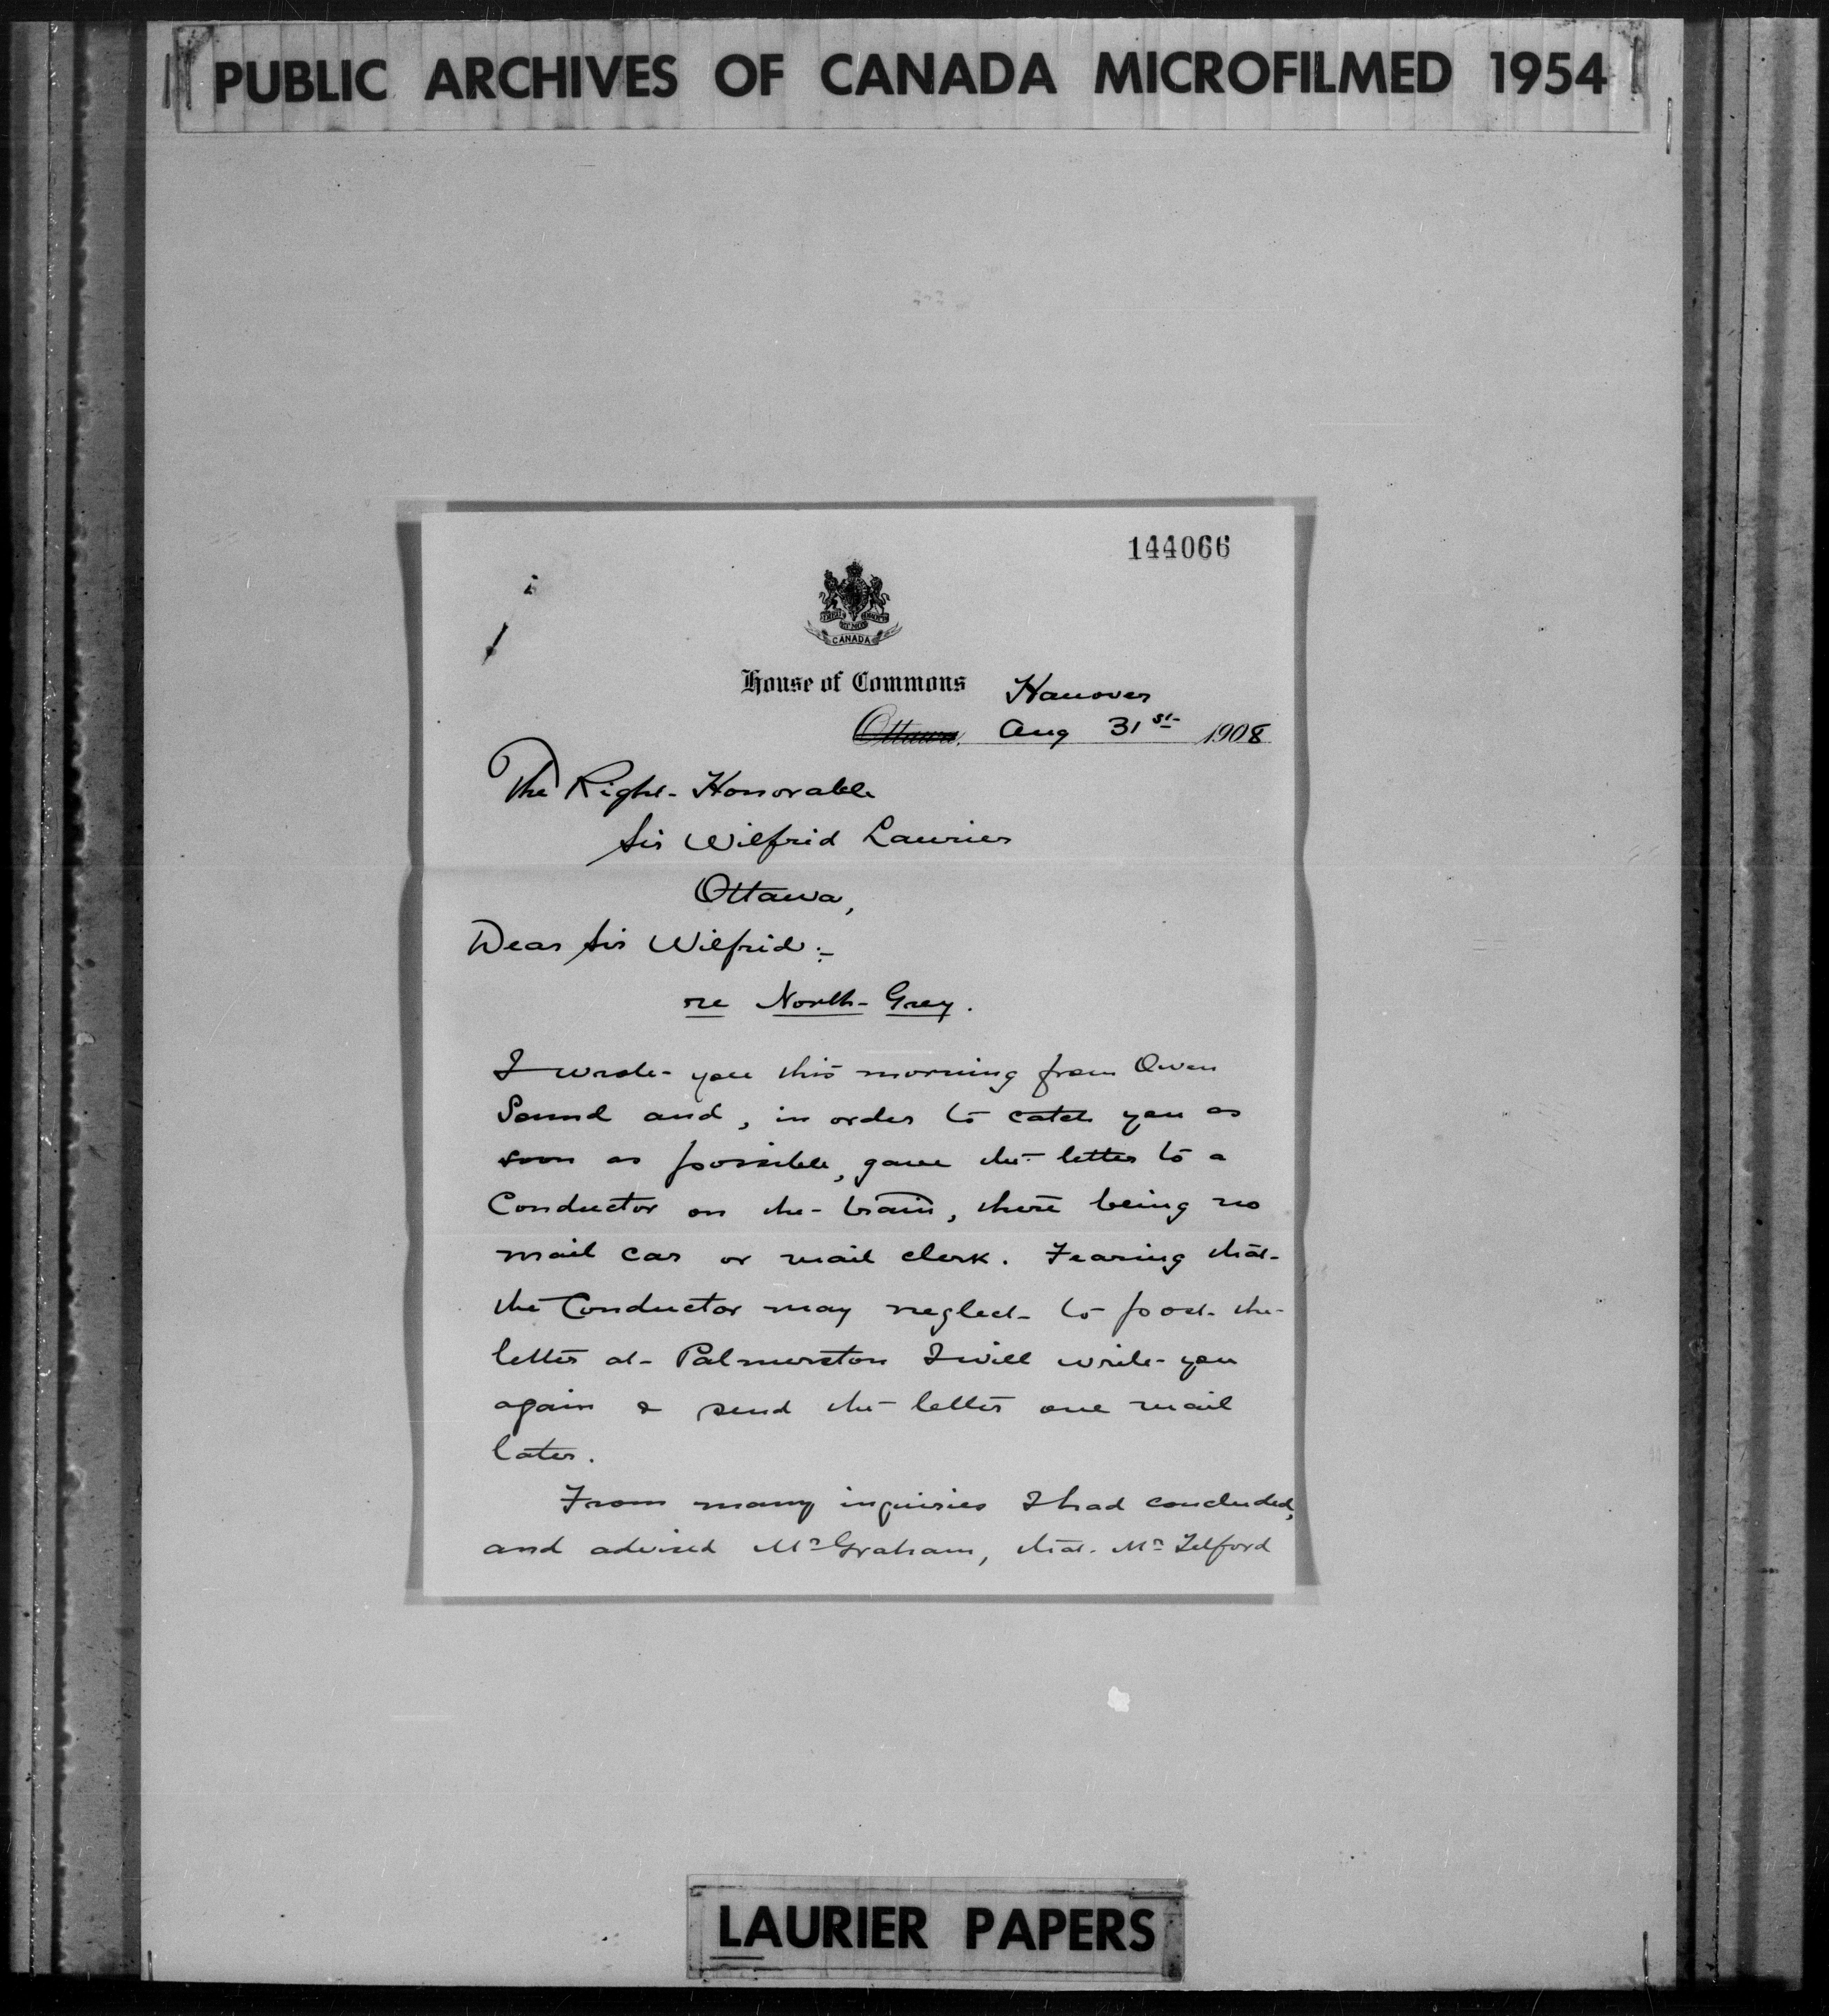 PUBLIC ARCHIVES OF CANADA MICROFILMED 1954
144066
CANADA
House of Commons
Hanover
Ottawa, Aug 31st 1908
The Right Honorable
Sir Wilfrid Laurier
Ottawa,
Dear Sir Wilfrid:-
re North Grey.
I wrote you this morning from Owen
Sound and, in order to catch you as
soon as possible, gave the letter to a
Conductor on the train, there being no
mail car or mail clerk. Fearing that
the Conductor may neglect to post the
letter at Palmerston I will write you
again & send the letter one mail
later.
From many inquiries I had concluded,
and advised Mr Graham, that Mr Telford
LAURIER PAPERS